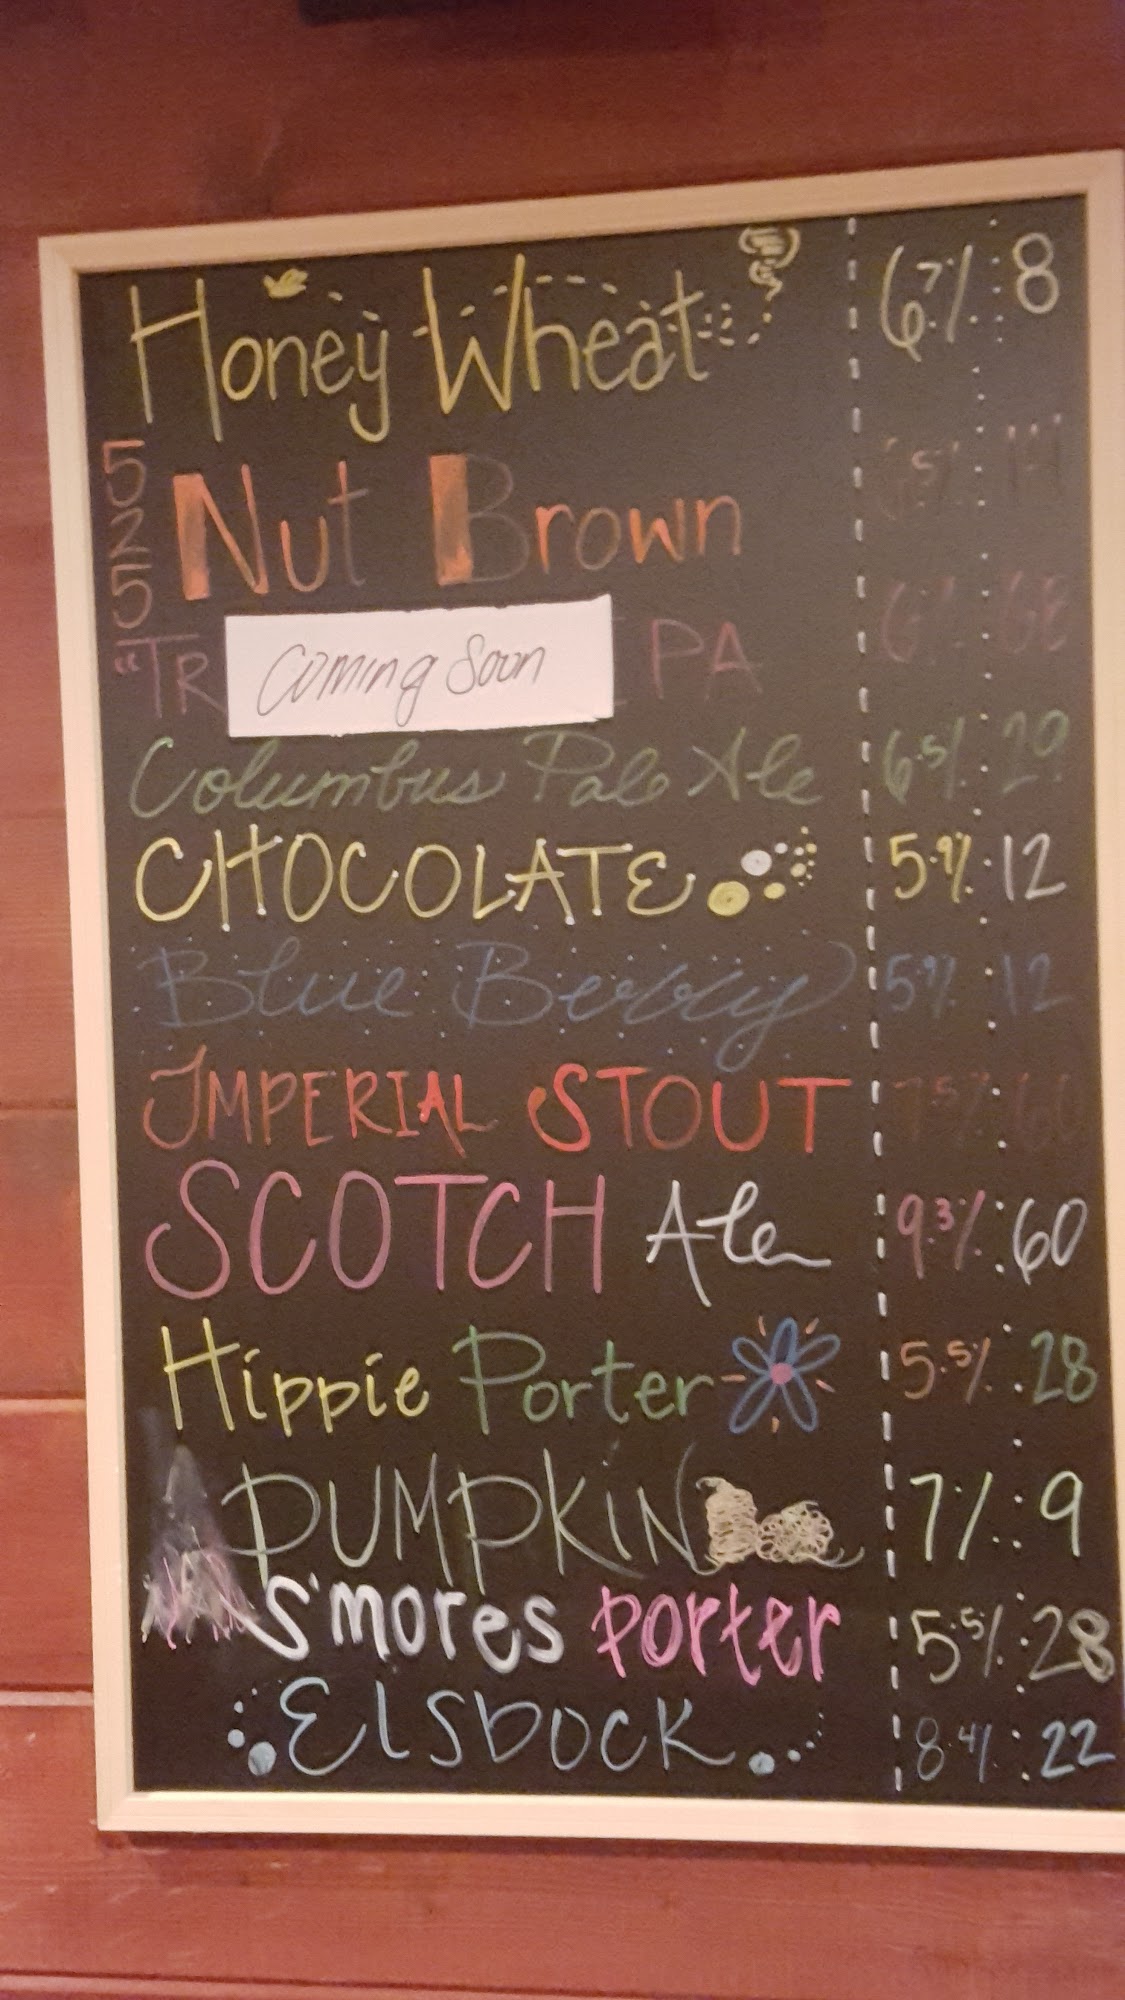 Honey Wheat 6.7% 8
525 Nut Brown 6.5%
"TR Coming Soon IPA 6% 68
Columbus Pale Ale 6.5% 29
CHOCOLATE 5.9% 12
Blue Berry 5.9% 12
IMPERIAL STOUT 7.5% 60
SCOTCH Ale 9.3% 60
Hippie Porter 5.5% 28
PUMPKiN 7% 9
S'mores porter 5.5% 28
ElSbOCK 8.4% 22